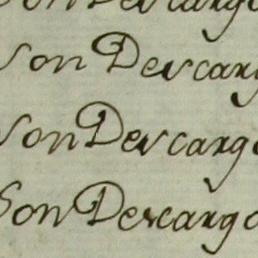 Son Descargo
Son Descarg
Son Descargo
Son Descargo